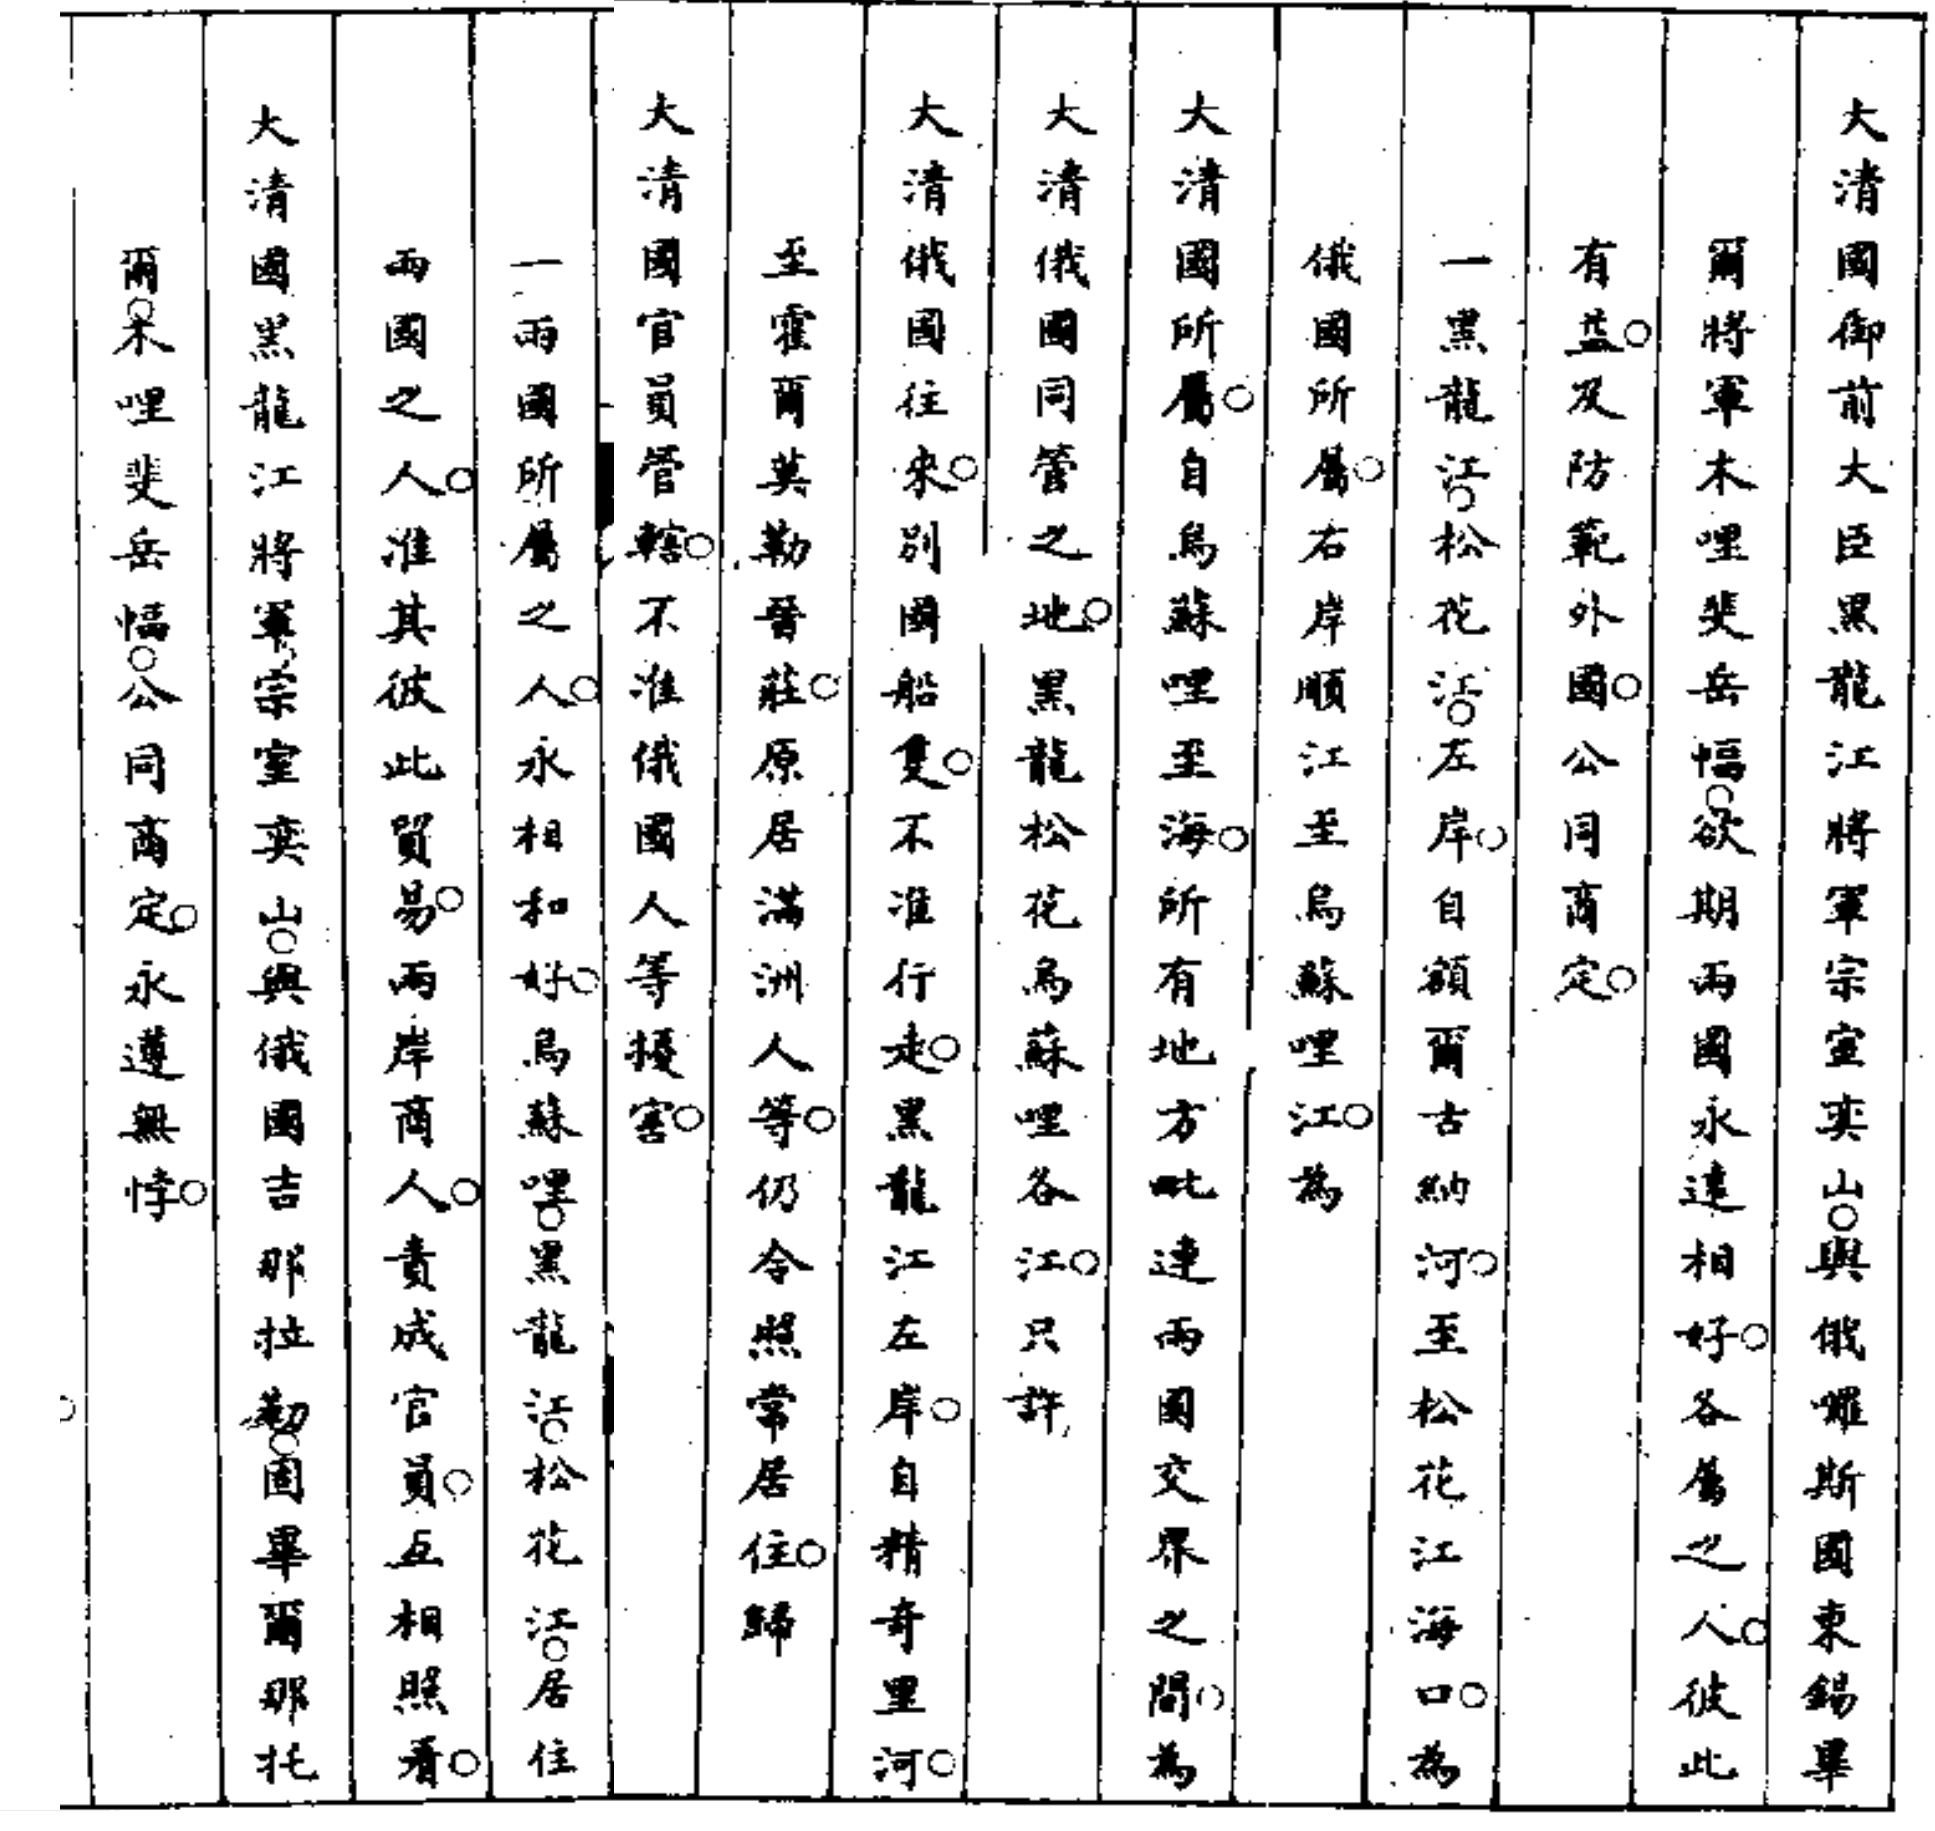 大清國御前大臣黑龍江將軍宗室奕山○與俄囉斯國東錫畢
爾將軍木哩斐岳幅○欲期兩國永遠相好○各屬之人○彼此
有益○及防範外國○公同商定○
一黑龍江○松花江○左岸○自額爾古納河○至松花江海口○為
俄國所屬○右岸順江至烏蘇哩江○為
大清國所屬○自烏蘇哩至海○所有地方毗連兩國交界之間○為
大清俄國同管之地○黑龍松花烏蘇哩各江○只許
大清俄國往來○別國船隻○不准行走○黑龍江左岸○自精奇里河○
至霍爾莫勒晉莊○原居滿洲人等○仍令照常居住○歸
大清國官員管轄○不准俄國人等擾害○
一兩國所屬之人○永相和好○烏蘇哩○黑龍江○松花江○居住
兩國之人○准其彼此貿易○兩岸商人○責成官員○互相照看○
大清國黑龍江將軍宗室奕山○與俄國吉那拉勒○固畢爾那托
爾○木哩斐岳幅○公同商定○永遵無悖○